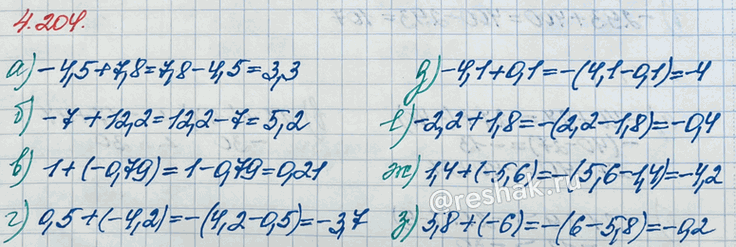 4.204.
а) -4,5+7,8=7,8-4,5=3,3
б) -7+12,2=12,2-7=5,2
в) 1+(-0,79)=1-0,79=0,21
г) 0,5+(-4,2)=-(4,2-0,5)=-3,7
д) -4,1+0,1=-(4,1-0,1)=-4
е) -2,2+1,8=-(2,2-1,8)=-0,4
ж) 1,4+(-5,6)=-(5,6-1,4)=-4,2
з) 5,8+(-6)=-(6-5,8)=-0,2
@reshak.ru